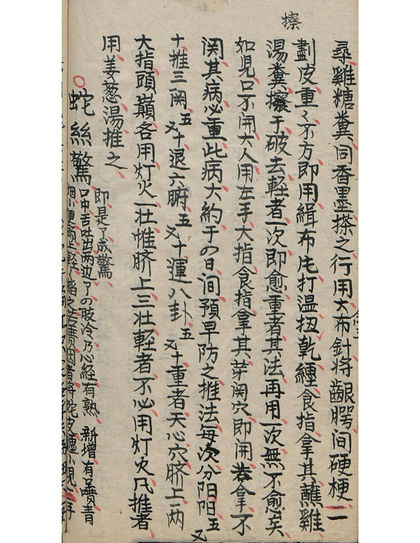 擦
尋雞糖糞同香墨搽之行用大布針将齦腭间硬梗一二
劃皮重之不方即用緝布片打温扭乾纏食指拿其蘸雞
湯糞擦于破去輕者一次即愈重者其法再用一次無不愈矣
如児口不開大人用左手大指食指拿其芽関穴即開若拿不
開其病必重此病大約于の日间預早防之推法每次分阴阳五又
十推三関五又十退六腑五又十運八卦五又十重者天心穴脐上一两
大指頭巔各用灯火一壮惟脐上三壮輕者不必用灯火凡推者
用姜葱湯推之
蛇絲驚
即是了成驚
口中舌吐出两边了の肢冷乃心經有熱 新增有屙青